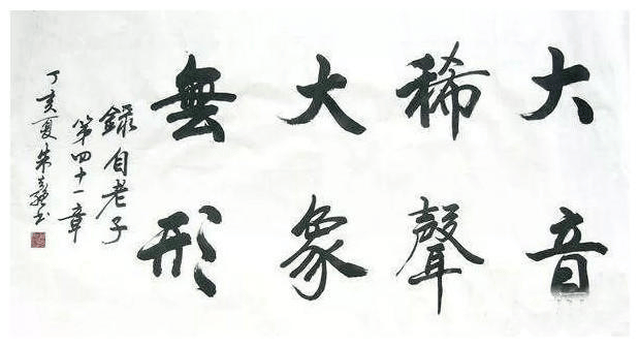 大音
稀聲
大象
無形
錄自老子
第四十一章
丁亥夏朱